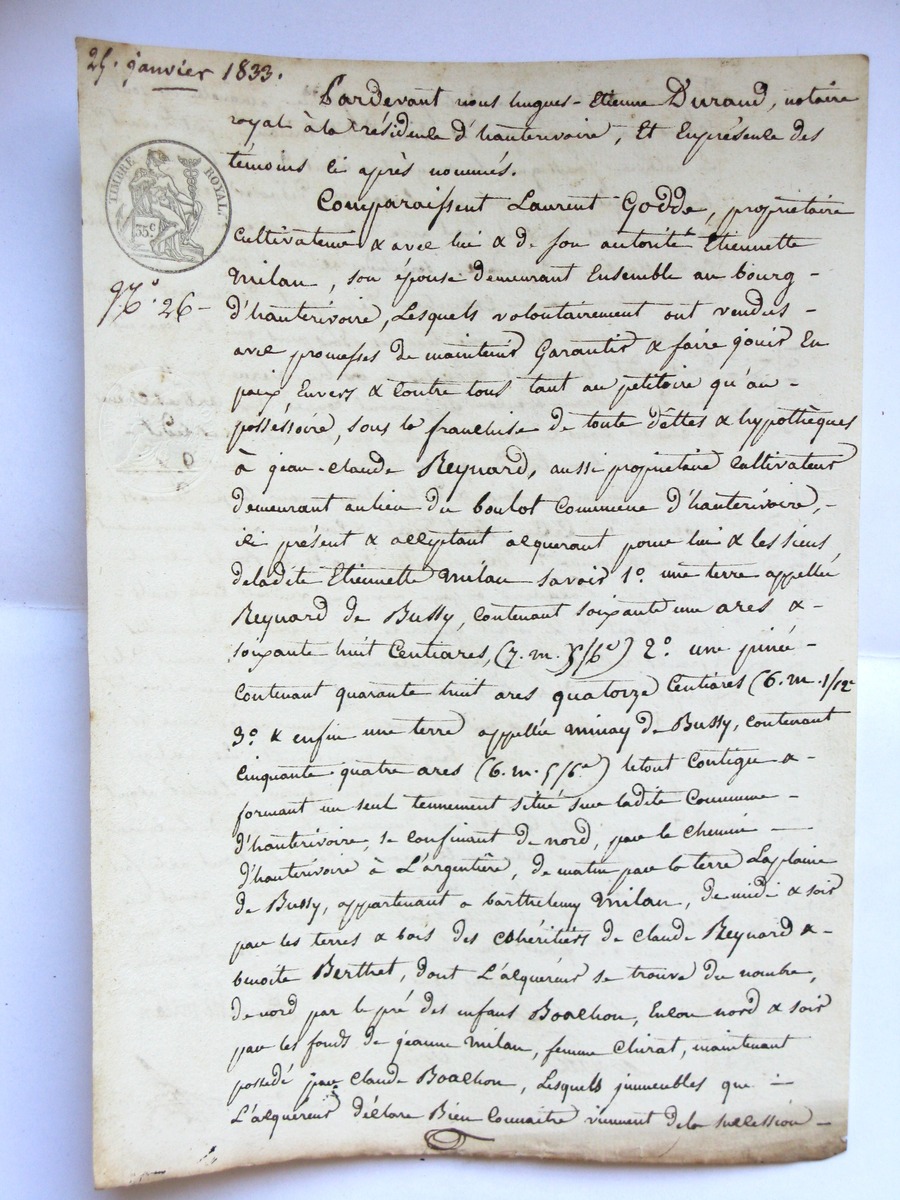 25. janvier 1833.
Pardevant nous hugues-Etienne Durand, notaire
royal à la résidence d'hauterivoire, Et En présence des
témoins ci après nommés.
TIMBRE ROYAL.
35 c
Comparaissent Laurent Godde, propriétaire
Cultivateur & avec lui & de son autorité Etiennette
Milan, son épouse demeurant Ensemble au bourg -
d'hauterivoire, Lesquels volontairement ont vendus -
26 -
avec promesses de maintenir Garantir & faire jouir En
paix Envers & Contre tous tant au pétitoire qu'au -
posséssoire, sous la franchise de toute dèttes & hypothèques
à jean-Claude Reynard, aussi propriétaire Cultivateur
demeurant au lieu du boulot Commune d'hauterivoire, -
ici présent & acceptant acquerant pour lui & les siens
de ladite Etiennette Milan savoir 1o. une terre appellée
Reynard de Bussy, contenant soixante une ares & -
soixante huit Centiares, (7. m. 2o. une pinée -
Contenant quarante huit ares quatorze Centiares (6. m. 1/12e
3o. & enfin une terre appellée minay de Bussy, Contenant
Cinquante quatre ares (6. m. 5/6e) le tout Contigu & -
formant un seul tennement situé sur ladite Commune -
d'hauterivoire, se confinant de nord, par le chemin -
d'hauterivoire à L'argentière, de matin par la terre Laplaine
de Bussy, appartenant a barthelemy Milan, de midi & soir
par les terres & bois des cohéritiers de Claude Reynard & -
benoite Berthet, dont L'acquéreur se trouve du nombre,
de nord par le pré des enfans Boachon, Encor nord & soir
par les fonds de jeanne Milan, femme Chirat, maintenant
possedé par Claude Boachon, Lesquels immeubles que -
L'acquereur déclare Bien Connaitre viennent de la succession -